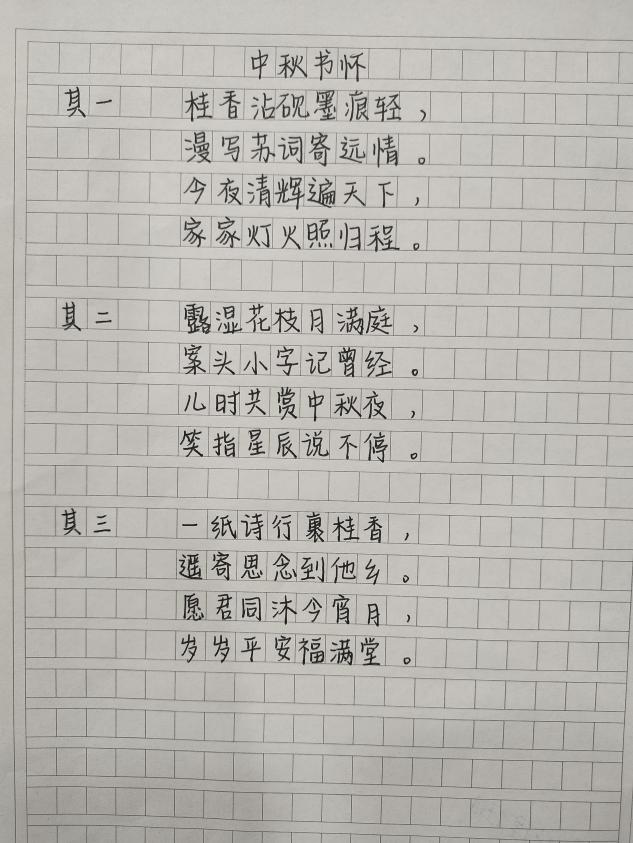 中秋书怀
其一 桂香沾砚墨痕轻，
漫写苏词寄远情。
今夜清辉遍天下，
家家灯火照归程。
其二 露湿花枝月满庭，
案头小字记曾经。
儿时共赏中秋夜，
笑指星辰说不停。
其三 一纸诗行裹桂香，
遥寄思念到他乡。
愿君同沐今宵月，
岁岁平安福满堂。